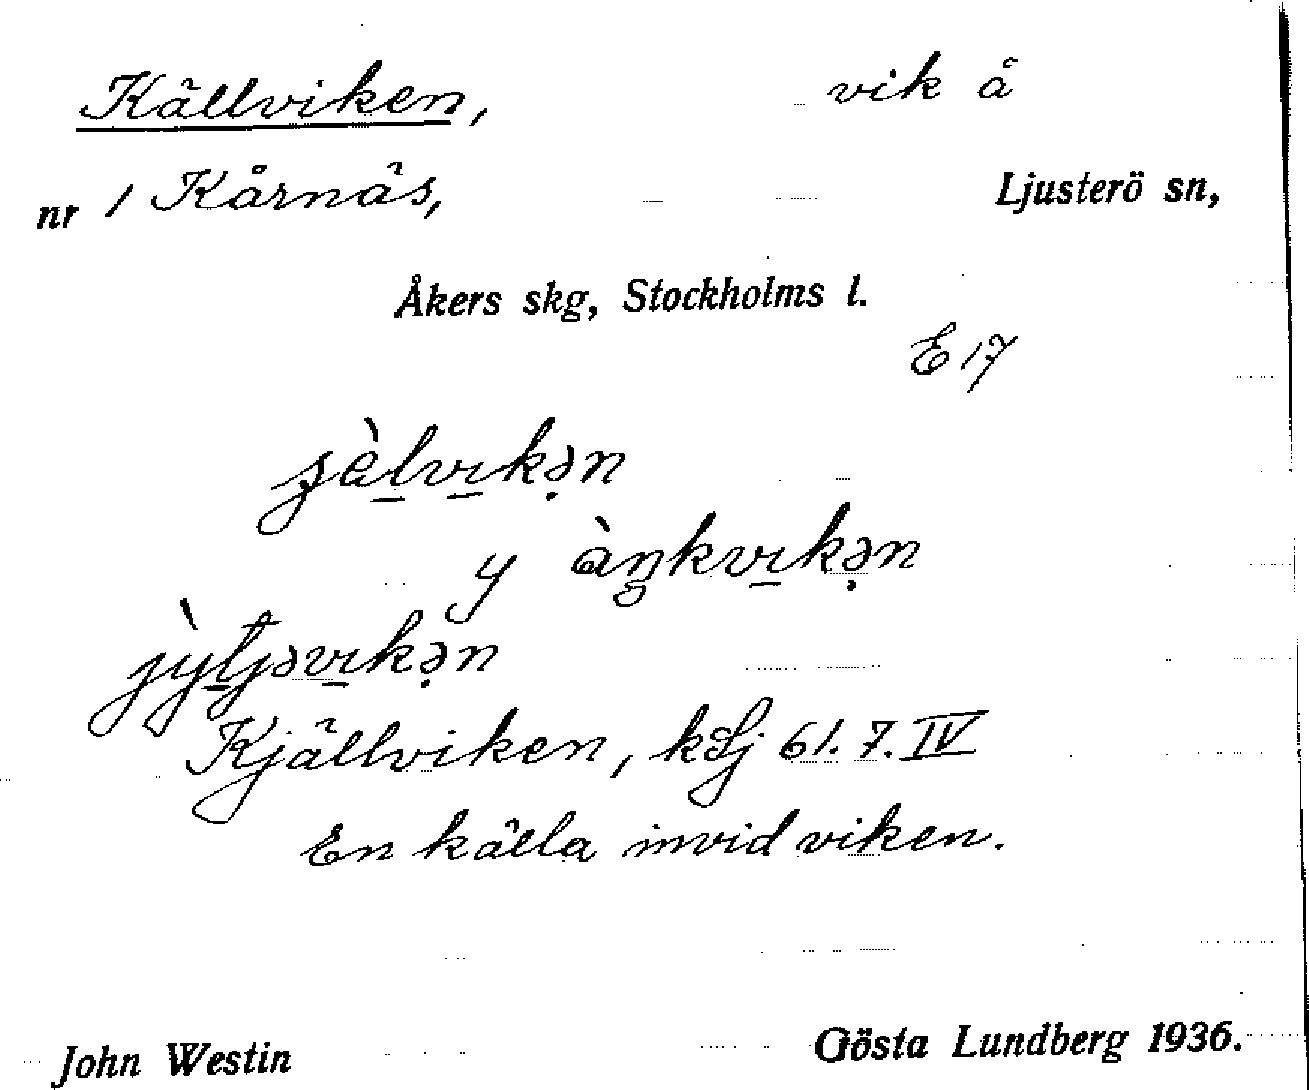 Källviken, vik å
nr 1 Kårnäs, Ljusterö sn,
Åkers skg, Stockholms l.
E 17
y
Kjällviken, kLj 61. 7. IV
En källa invid viken.
John Westin Gösta Lundberg 1936.